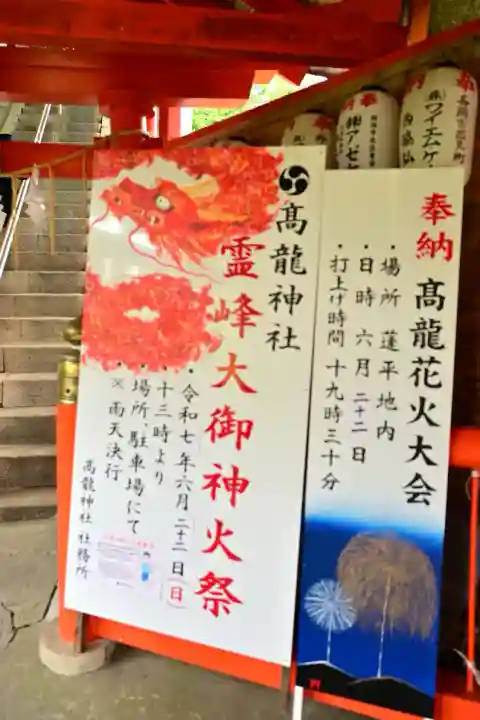 奉納 髙龍花火大会
・場所 蓬平地内
・日時 六月二十二日
・打上げ時間 十九時三十分
髙龍神社
霊峰大御神火祭
・令和七年六月二十二日(日)
十三時より
・場所、駐車場にて
※雨天決行
髙龍神社 社務所
奉
奉